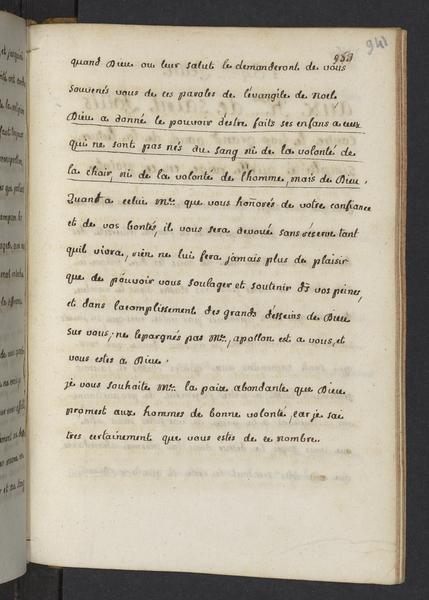 953 941
quand Dieu ou leur salut le demanderont de vous
souvenés vous de ces paroles de levangile de noel
Dieu a donné le pouvoir destre faits ses enfans a ceux
qui ne sont pas nés du sang ni de la volonté de
la chair, ni de la volonte de lhomme, mais de Dieu.
Quant a celui Me. que vous honorés de votre confiance
et de vos bontés, il vous sera devoué sans réserve tant
quil vivra, rien ne lui fera jamais plus de plaisir
que de pouvoir vous soulager et soutenir ds vos peines,
et dans lacomplissement des grands desseins de Dieu
sur vous; ne lepargnés pas Me., apollon est a vous, et
vous estes a Dieu.
je vous souhaite Me. la paix abondante que Dieu
promest aux hommes de bonne volonté, car je sai
tres certainement que vous estes de ce nombre.